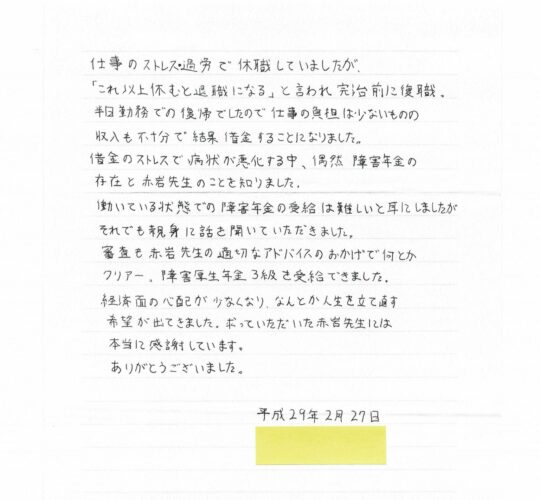 仕事のストレス・過労で休職していましたが、
「これ以上休むと退職になる」と言われ完治前に復職。
半日勤務での復帰でしたので仕事の負担は少ないものの
収入も不十分で結果借金することになりました。
借金のストレスで病状が悪化する中、偶然障害年金の
存在と赤岩先生のことを知りました。
働いている状態での障害年金の受給は難しいと耳にしましたが
それでも親身に話を聞いていただきました。
審査も赤岩先生の適切なアドバイスのおかげで何とか
クリアー。障害厚生年金3級を受給できました。
経済面の心配が少なくなり、なんとか人生を立て直す
希望が出てきました。
いただいた赤岩先生には
本当に感謝しています。
ありがとうございました。
平成29年2月27日